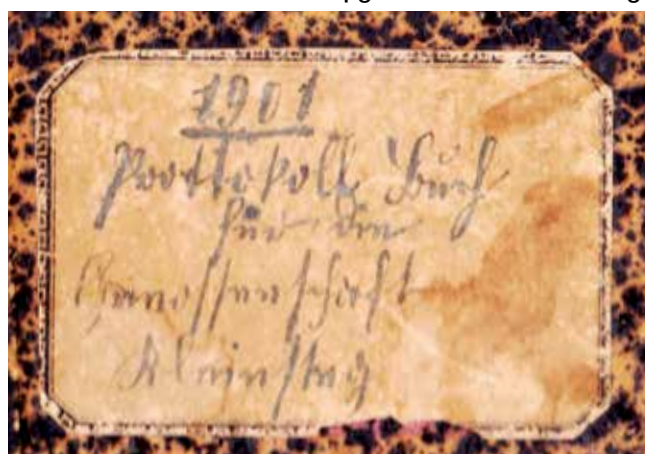 1901
Prottokoll Buch
für die
Genossenschaft
Kleinsteg